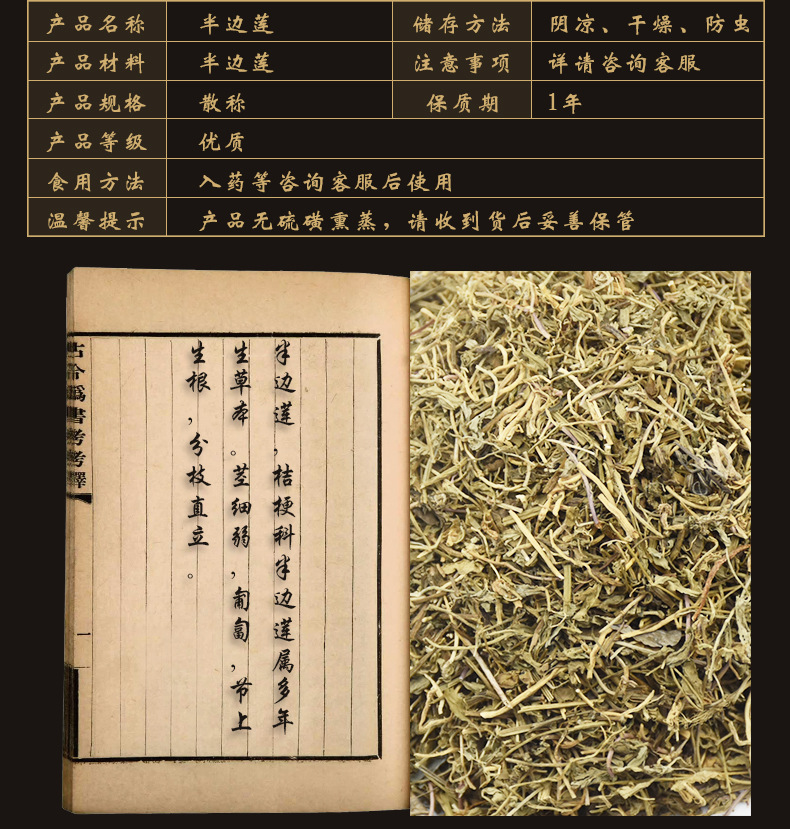 产品名称 半边莲 储存方法 阴凉、干燥、防虫
产品材料 半边莲 注意事项 详请咨询客服
产品规格 散称 保质期 1年
产品等级 优质
食用方法 入药等咨询客服后使用
温馨提示 产品无硫磺熏蒸，请收到货后妥善保管
半边莲，桔梗科半边莲属多年
生草本。茎细弱，匍匐，节上
生根，分枝直立。
古今偽書考考釋
一